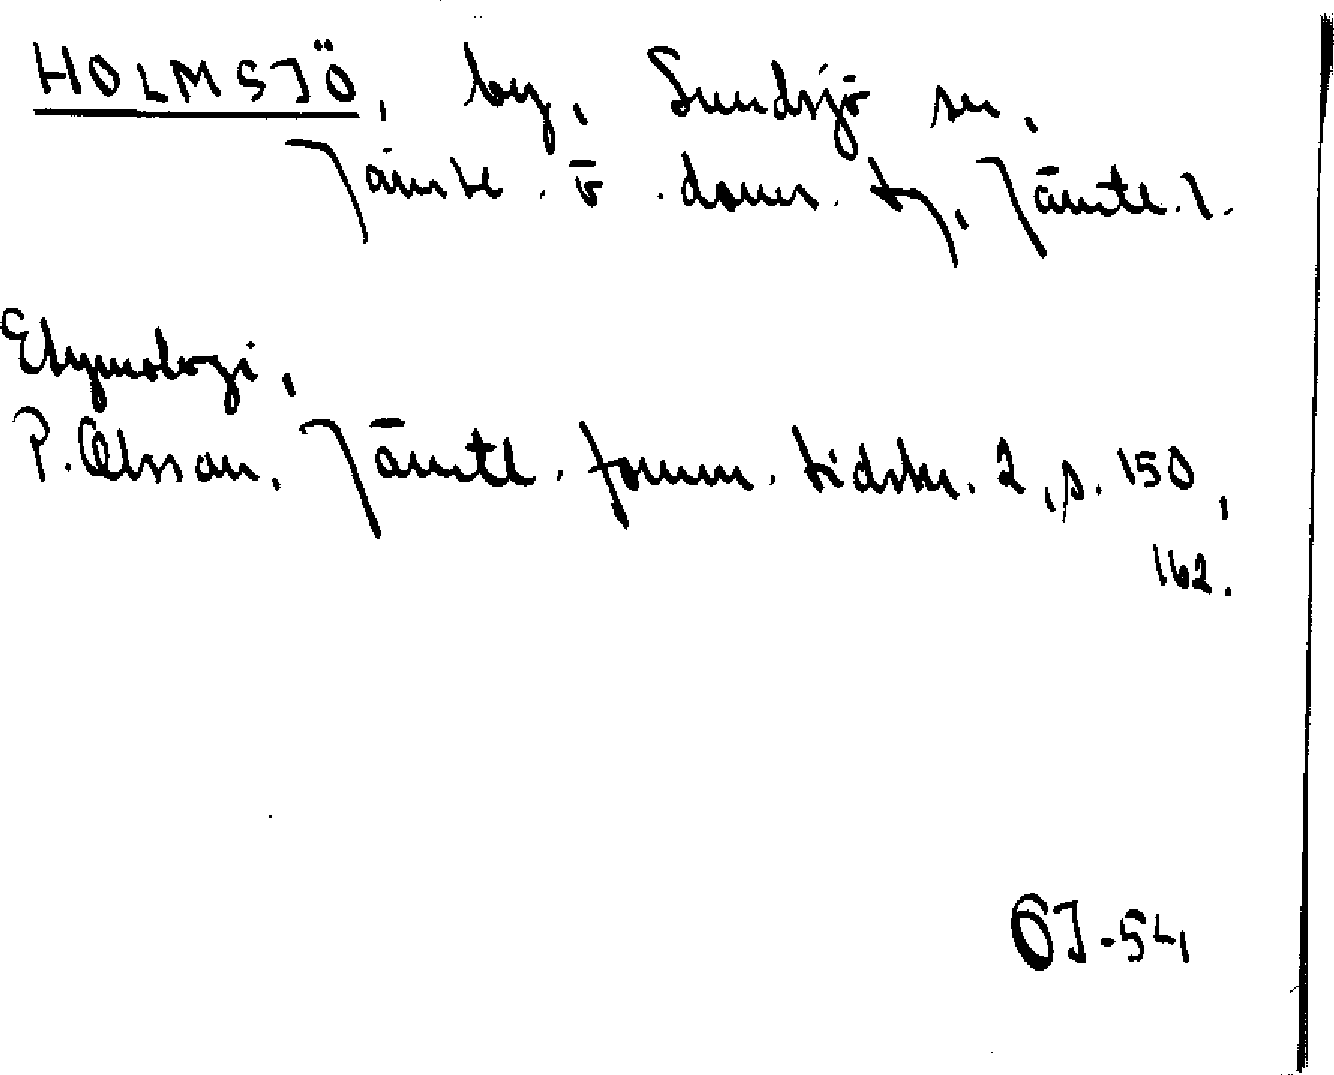 HOLMSJÖ, by, Sundsjö sn,
Jämtl. ö. doms. tj, Jämtl. l.
Etymologi,
P. Olsson, Jämtl. fornm. tidskr. 2, s. 150,
162.
ÖJ-54